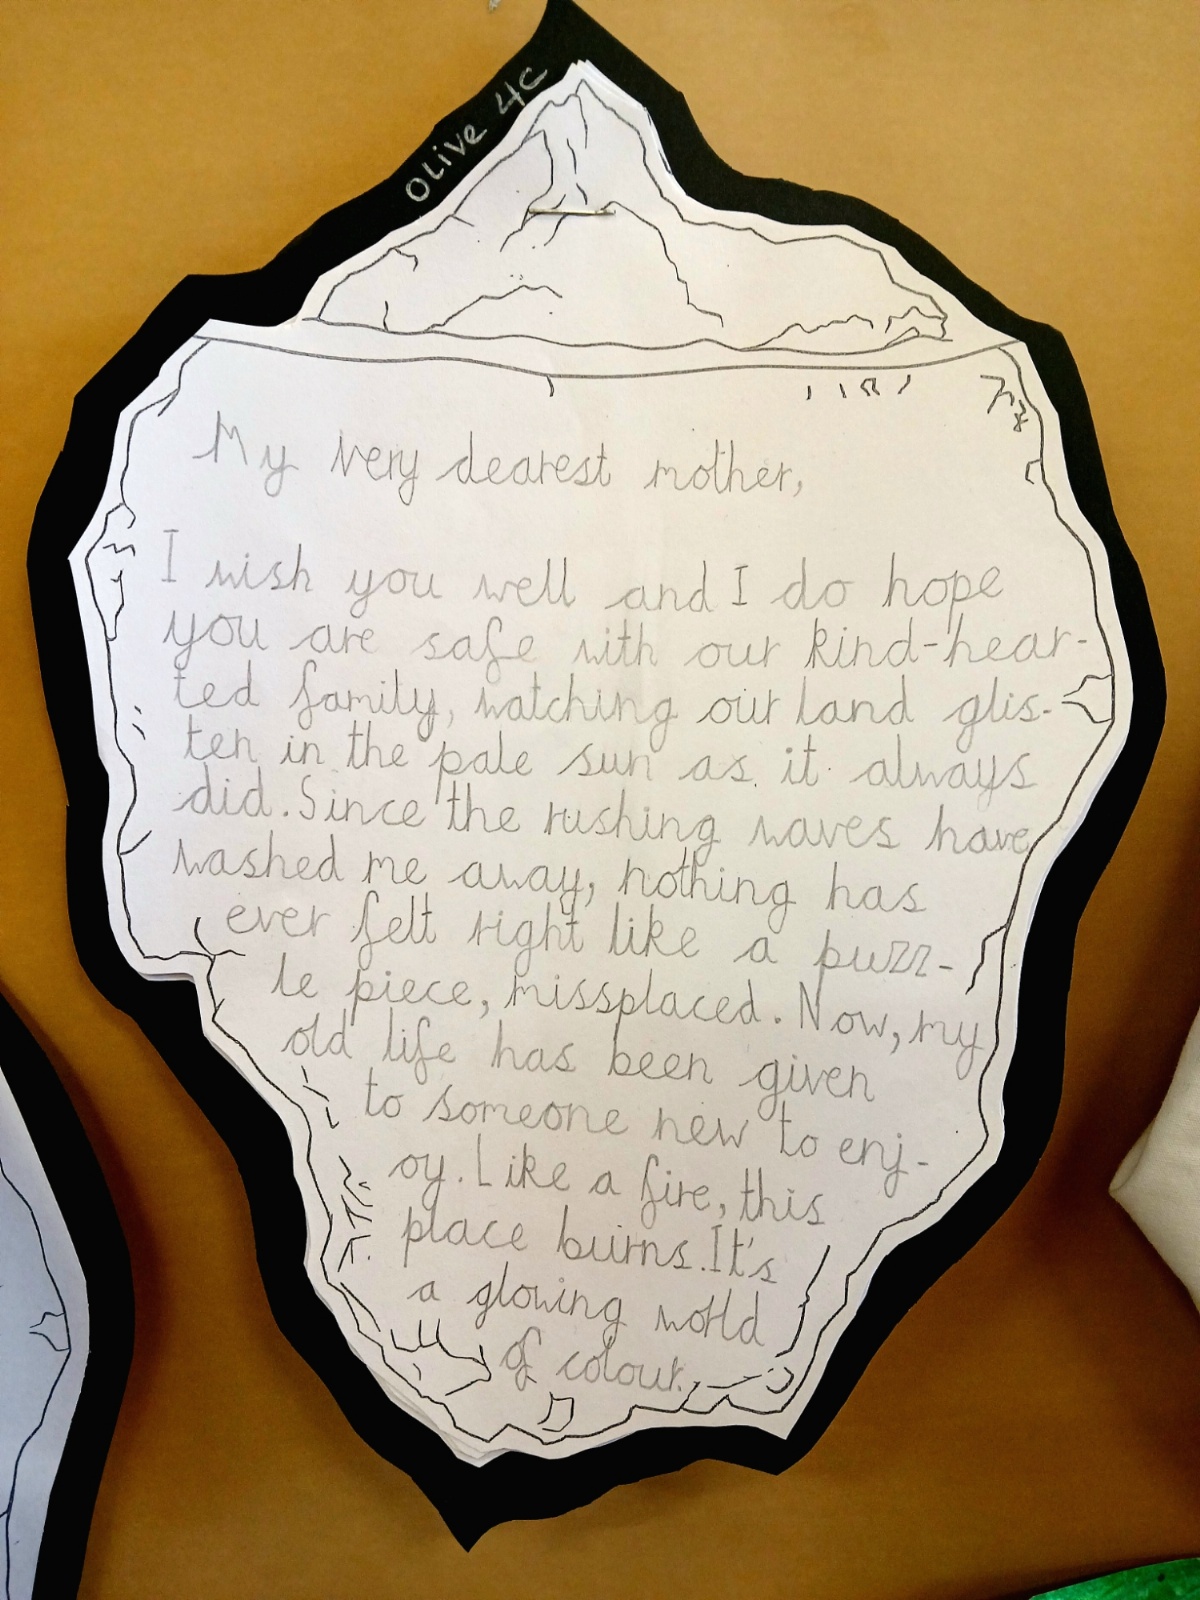 Olive 4C
My very dearest mother,
I wish you well and I do hope
you are safe with our kind-hear-
ted family, watching our land glis-
ten in the pale sun as it always
did. Since the rushing waves have
washed me away, nothing has
ever felt right like a puzz-
le piece, missplaced. Now, my
old life has been given
to someone new to enj-
oy. Like a fire, this
place burns. It's
a glowing world
of colour.